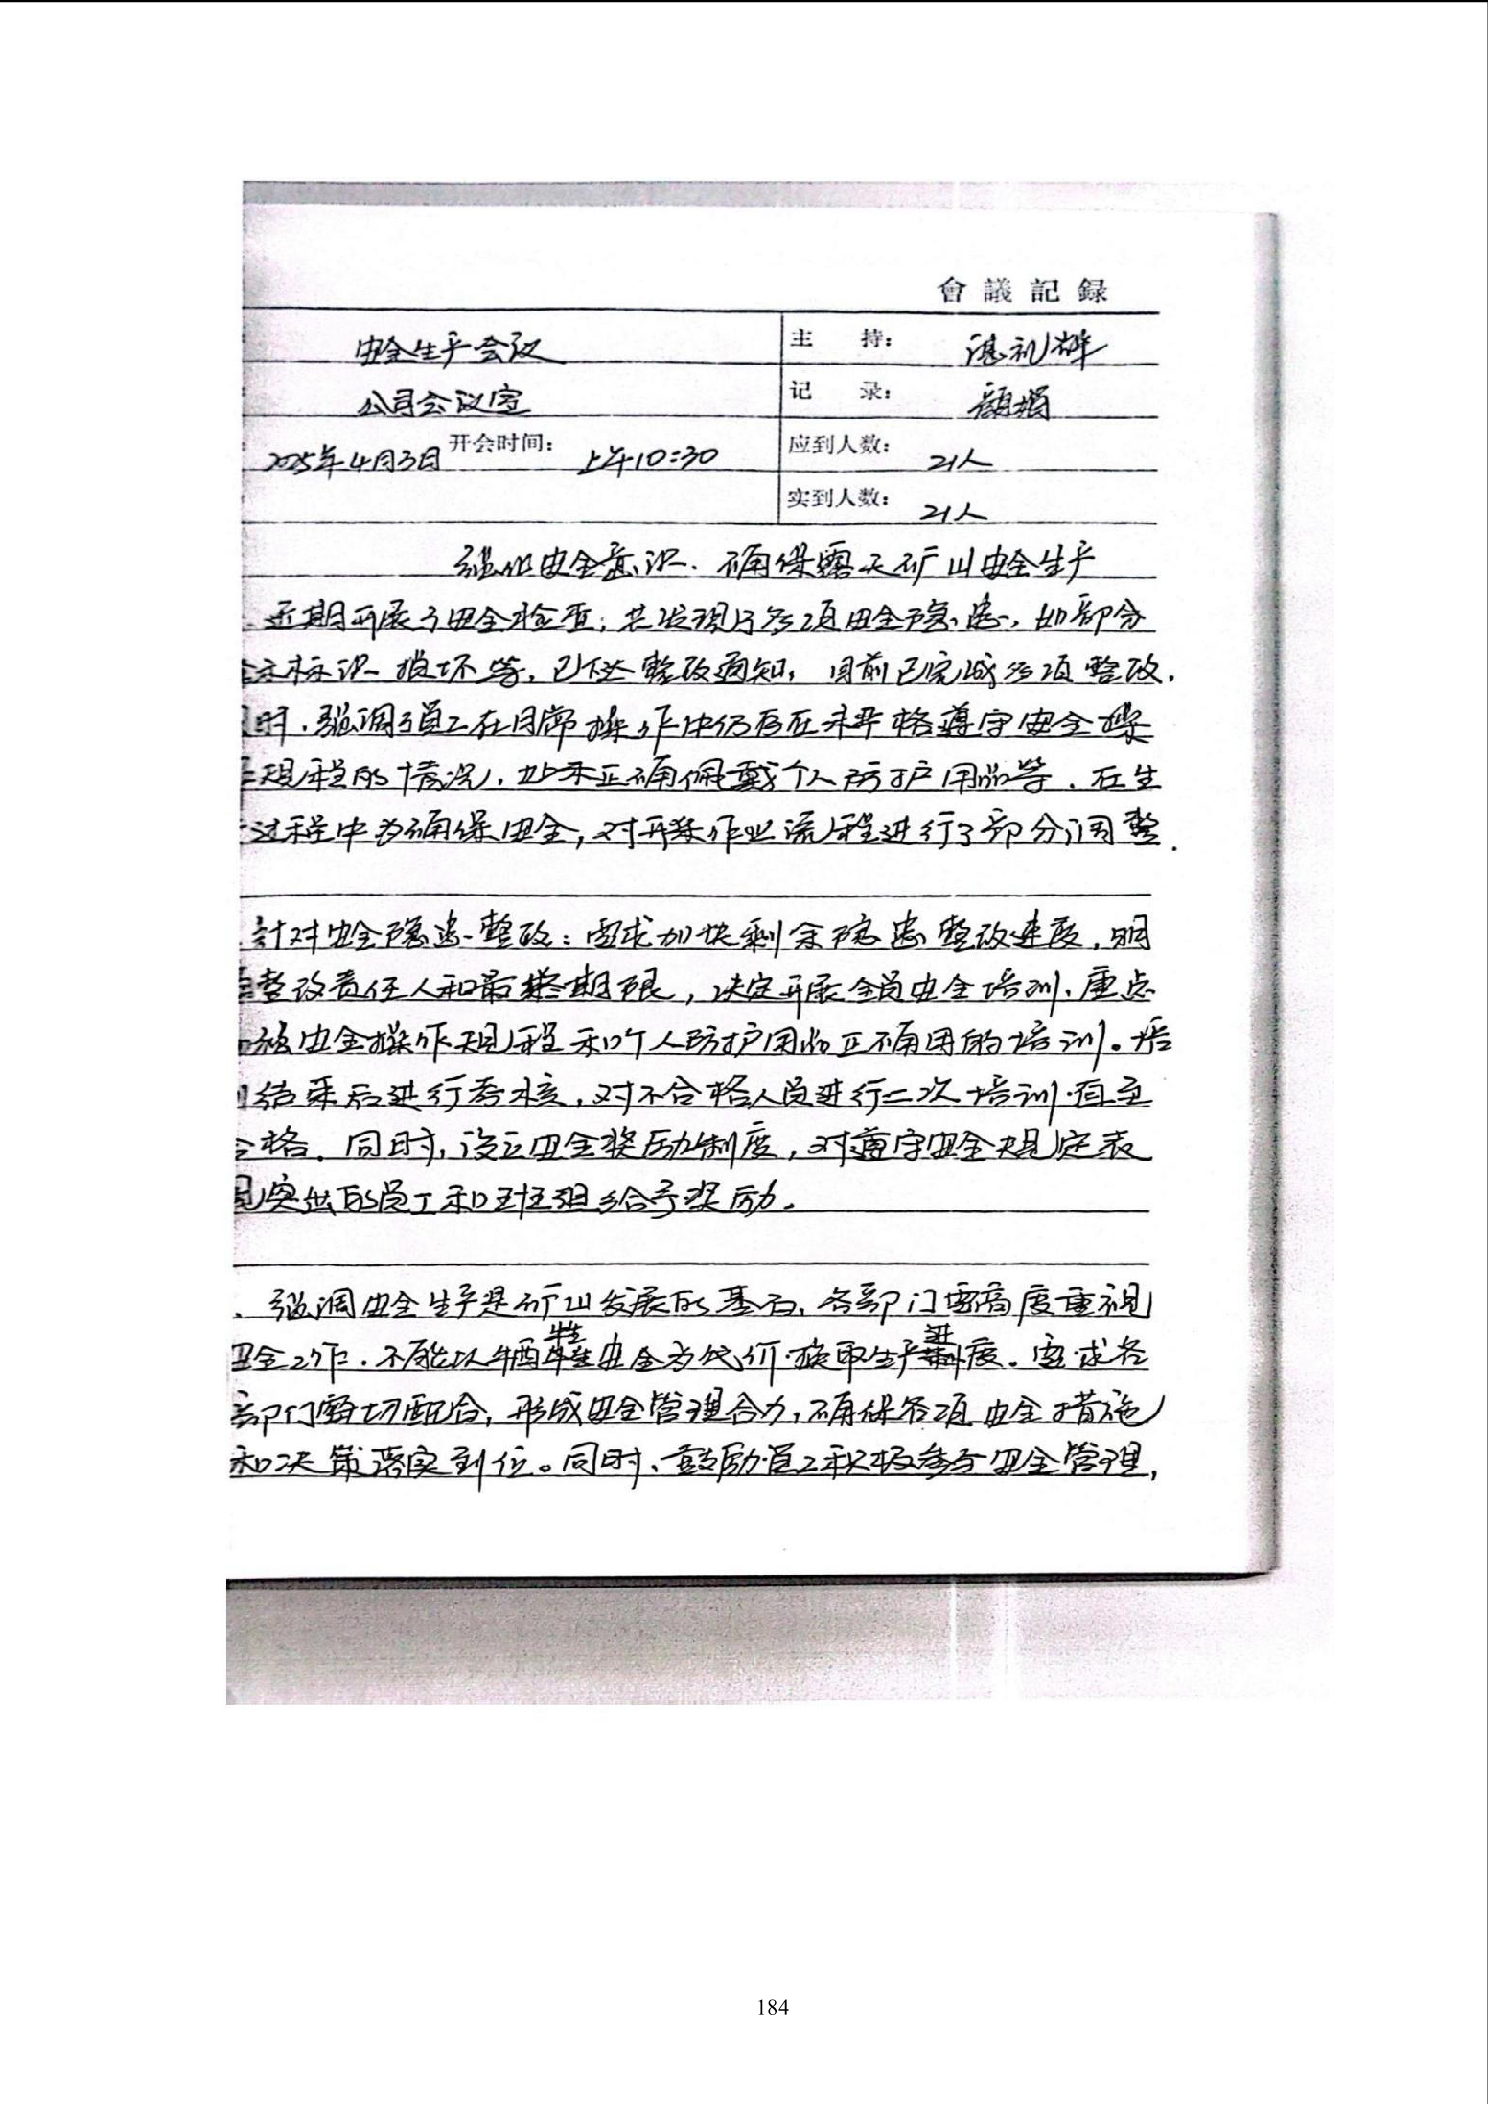 會議記録
安全生产会议 主 持: 谌礼辉
公司会议室 记 录: 颜娟
2025年4月3日 开会时间: 上午10:30 应到人数: 21人
实到人数: 21人
强化安全意识、确保露天矿山安全生产
、近期开展了安全检查;共发现了多项安全隐患,如部分
标识损坏等,已下达整改通知,目前已完成多项整改,
时,强调了员工在日常操作中仍存在未严格遵守安全操
规程的情况,如未正确佩戴个人防护用品等、在生
过程中为确保安全,对开采作业流程进行了部分调整.
、針对安全隐患整改:需求加快剩余隐患整改速度,明
整改责任人和最终期限,决定开展全员安全培训、重点
安全操作规程和个人防护用品正确用的培训。培
结束后进行考核,对不合格人员进行二次培训,直至
合格.同时,设立安全奖励制度,对遵守安全规定表
突出的员工和班组给予奖励.
、强调安全生产是矿山发展的基石,各部门需高度重视
安全工作.不能以牺牲安全为代价换取生产进度。要求各
部门密切配合,形成安全管理合力,确保各项安全措施
和决策落实到位。同时、鼓励员工积极参与安全管理,
184